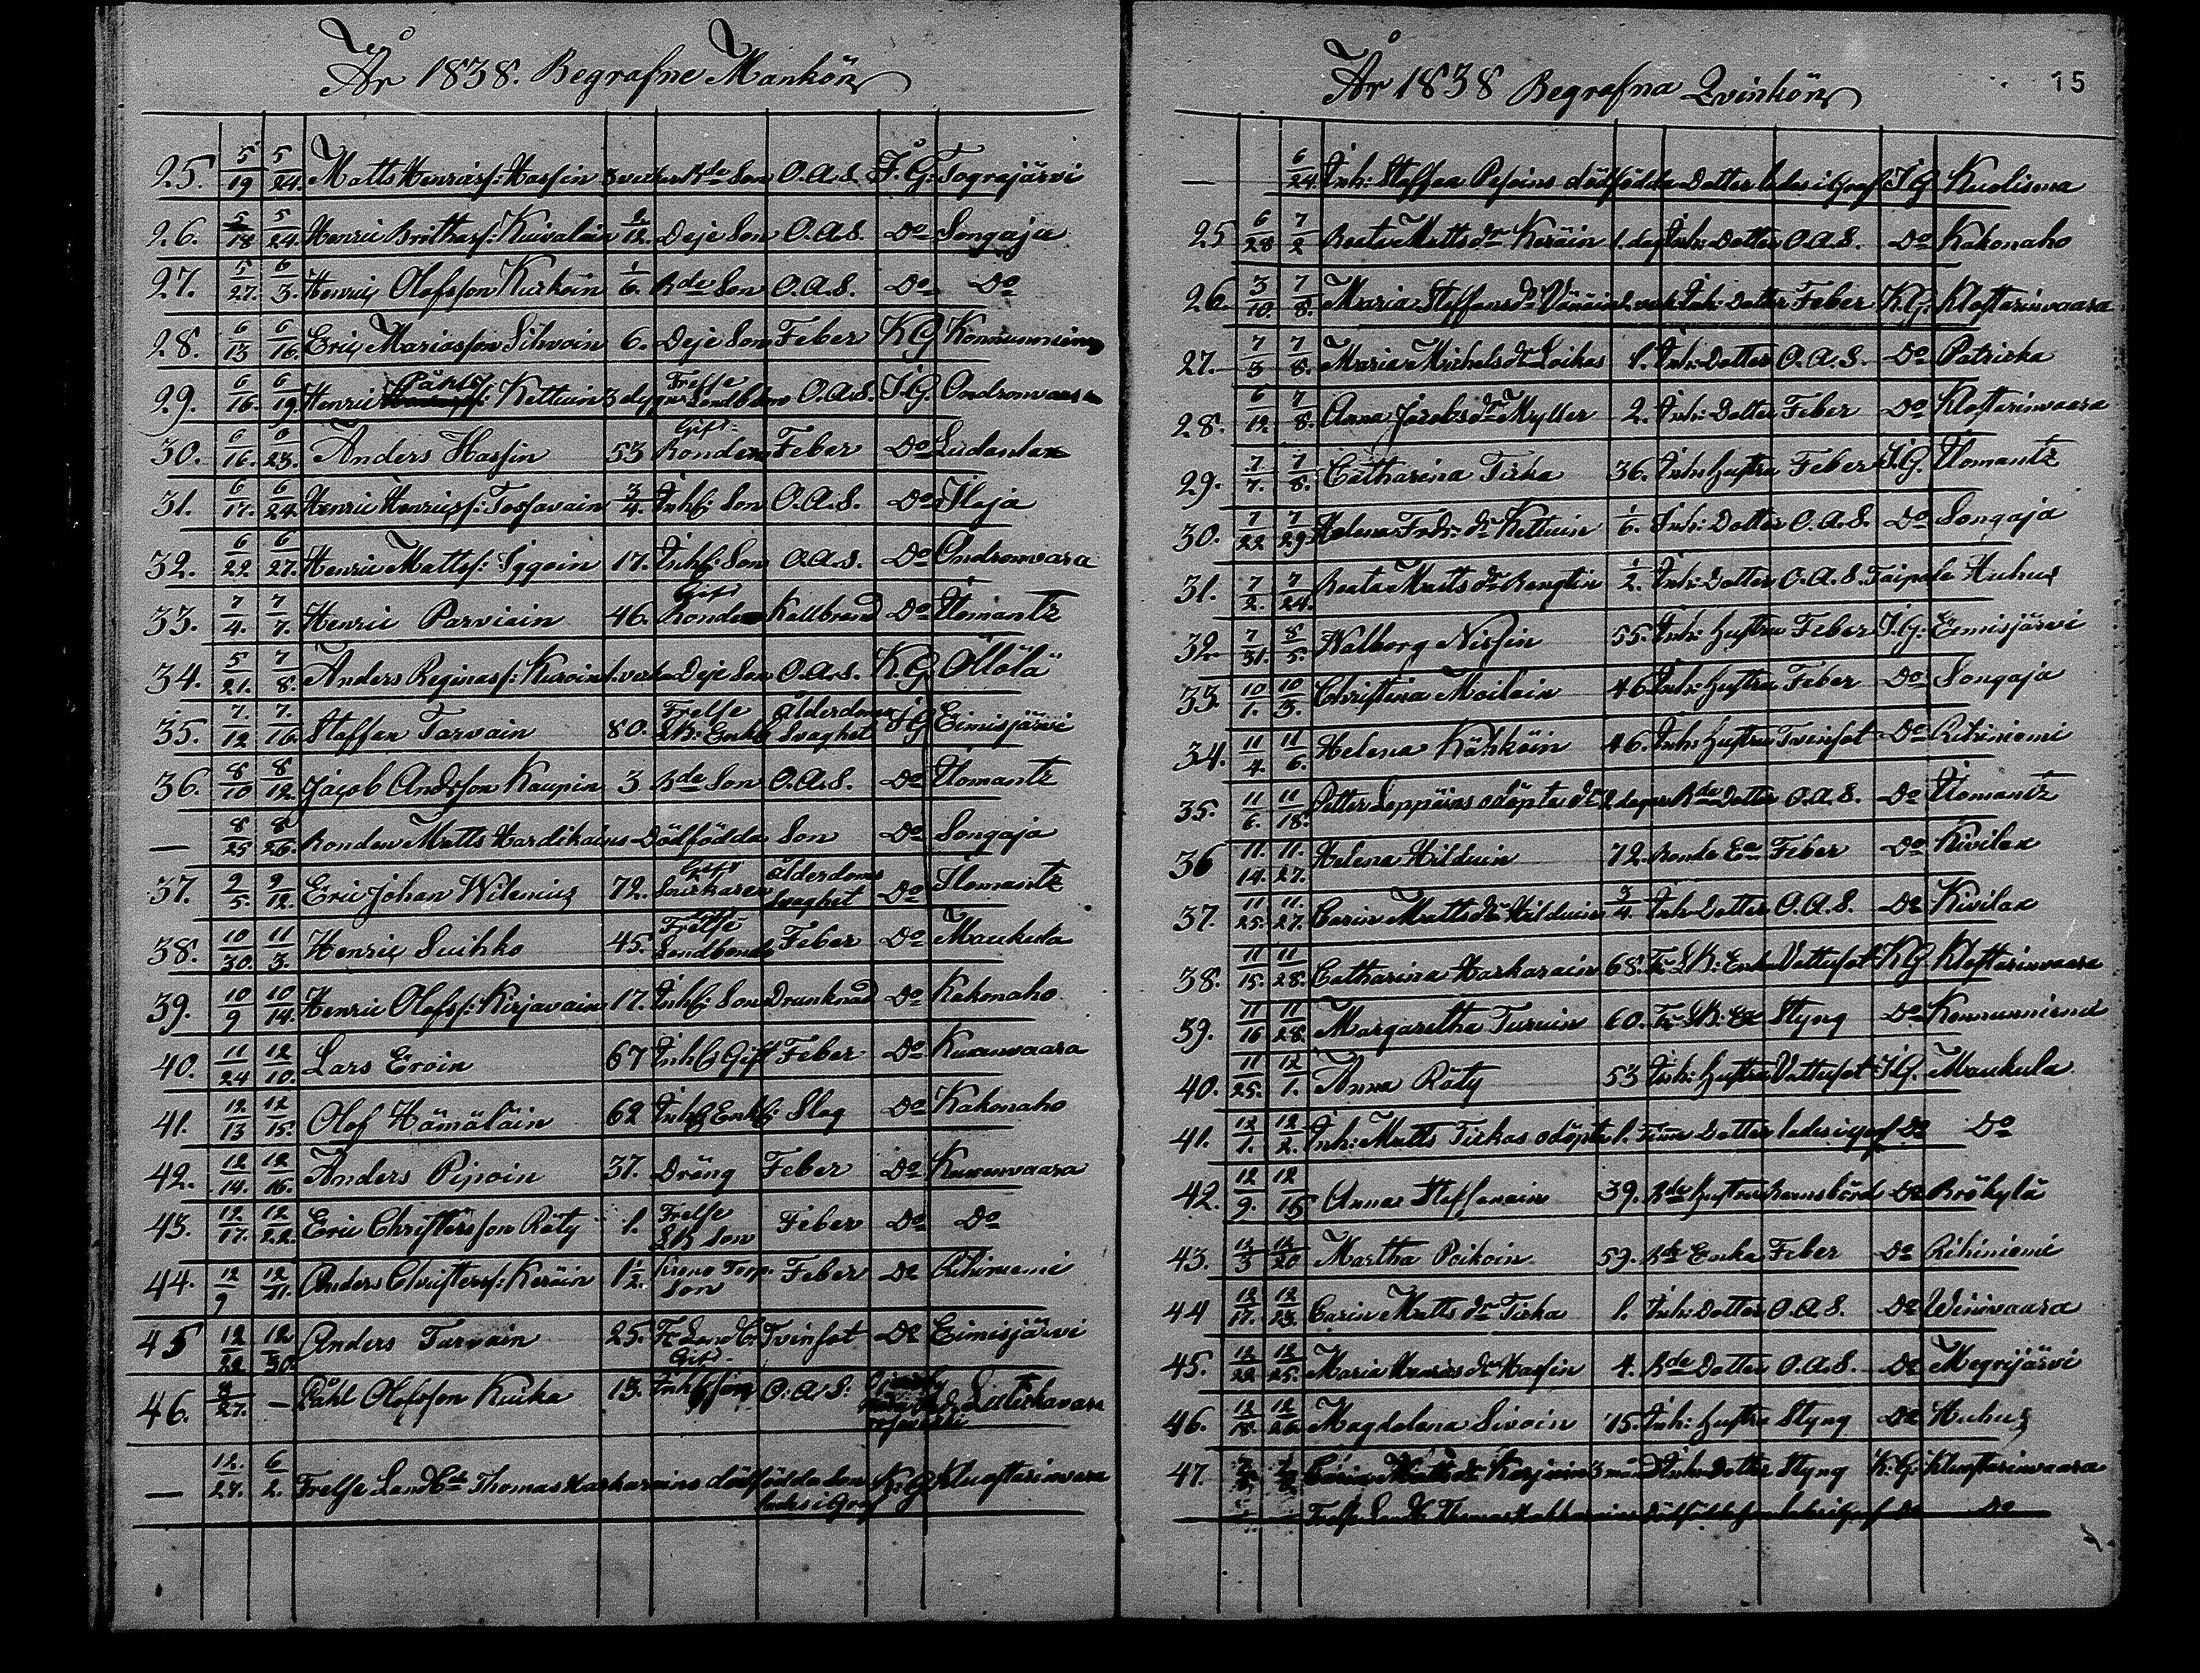 År 1838. Begrafne Mankön
25. 5/19 5/24. Matts Henricsf: Hassin 3 veckor Bde Son O.A.S. I.G. Tograjärvi
26. 5/18 5/24. Henric Brithasf: Kuivalain Deje Son O.A.S. Do Songaja
27. 5/27. 6/3. Henric Olofsson Kurkoin 1/6. Bde Son O.A.S. Do Do
28. 6/13 6/16. Eric Mariasson Silvoin 6. Deje Son Feber K G Konnunniemi
29. 6/16. 6/19 Henric Påhlsf: Kettuin 3 dygn Frelse Landb. Son O.A.S. I.G. Ondronvaara
30. 6/16. 6/23. Anders Hassin 53 Gift Bonden Feber Do Ludanlax
31. 6/17. 6/24. Henric Henricsf: Tossavain 3/4. Inhs: Son O.A.S. Do Ilaja
32. 6/22 6/27. Henric Mattsf: Iggoin 17. Inhs: Son O.A.S. Do Ondronvara
33. 7/4. 7/7. Henric Parviain 46. Gift Bonde Kallbrand Do Ilomantz
34. 5/21. 7/8. Anders Reginasf: Kuroin 1. vecka Deje Son O.A.S. K.G. Ollölä
35. 7./12 7./16. Staffan Tarvain 80. Frelse LB: Enkl: ålderdoms Svaghet I G Eimisjärvi
36. 8/10 8/12. Jacob Andsson Kaupin 3 Bde Son O.A.S. Do Ilomantz
— 8/25 8/26. Bonden Matts Hardikains Dödfödda Son Do Songaja
37. 9/5. 9/12. Eric Johan Wilenius 72. Gift Sockskaren ålderdoms Svaghet Do Ilomantz
38. 10/30. 11/3. Henric Suihko 45. Gift Frelse Landbonde Feber Do Maukula
39. 10/9 10/14. Henric Olofsf: Kirjavain 17. Inhs: Son Drunknad Do Kakonaho
40. 11/24 12/10. Lars Eroin 67 Inhs Gift Feber Do Kuuxnvaara
41. 12/13 12/15. Olof Hämäläin 62 Inhs Enkl: Slag Do Kakonaho
42. 12/14. 12/16. Anders Piipoin 37. Dräng Feber Do Kuuxnvaara
43. 12/17. 12/22. Eric Christersson Räty 1. Frelse LB Son Feber Do Do
44. 12/9 12/21. Anders Christersf: Keräin 1 1/2. Krono Torp. Son Feber Do Rihiniemi
45 12/22 12/30. Anders Turvain 25. Fr Land B: Gift Tvinsot Do Eimisjärvi
46. /27. — Påhl Olofsson Kuika 13. Inhs son O.A.S: Lutichavara
— 12./27. 6/2. Frelse Land Bde Thomas Harkarains dödfödda Son lades i Graf K: G Kluaftarinvara
År 1838 Begrafna Qvinkön
15
— 6/24. Inh: Staffan Pesoins dödfödda Dotter lades i Graf I G Kuolisma
25 6/28 7/2 Beata Matts dr Keräin 1. dag Inh: Dotter O.A.S. Do Kakonaho
26. 3/10. 7/8. Maria Staffans dr Vänäin 2. veck Inh: Dotter Feber K.G. Klaftarinvaara
27. 7/3 7/8. Maria Michels dr Loikas 1. Inh: Dotter O.A.S. Do Patricka
28. 6/12. 7/8. Anna Jacobs dr Myller 2. Inh: Dotter Feber Do Klaftarinvaara
29. 7/7. 7/8. Catharina Tirka 36. Inh: hustru Feber I.G. Ilomantz
30. 7/22 7/29 Helena Fredr: dr Kettuin 1/6. Inh: Dotter O.A.S. Do Songaja
31. 7/2. 7/24. Beata Matts dr Bengtin 1/2. Inh: Dotter O.A.S. Taipale Huhus
32. 7/31. 8/5. Walborg Nissin 55. Inh: hustru Feber I.G: Eimisjärvi
33. 10/1. 10/3. Christina Moilain 46 Inh: hustru Feber Do Songaja
34. 11/4. 11/6. Helena Kähköin 46. Inh: hustru Tvinsot Do Rihiniemi
35. 11/6. 11/18. Petter Leppäins odöpta dr 2 dagar Bde Dotter O.A.S. Do Ilomantz
36 11./14. 11./27. Helena Hilduin 72. Bonde Ea Feber Do Kivilax
37. 11/25. 11./27. Carin Matts dr Hilduin 3/4. Inh Dotter O.A.S. Do Kivilax
38. 11/15. 11/28. Catharina Harkarain 68. Fr LB: Enka Vattusot K G Klaftarinvaara
39. 11/16 11/28. Margaretha Turuin 60. Fr LB: Ea Styng Do Konnunniemi
40. 11/25. 12/1. Anna Räty 53 Inh: hustru Vattusot I G. Maukula
41. 12/1. 12/2. Inh: Matts Tirkas odöpta 1. Timme Dotter lades i graf Do Do
42. 12/9. 12/15 Anna Staffanain 39. Bde hustru Barnsbörd Do Brökylä
43. 12/3 12/20 Martha Poikoin 59. Bde Enka Feber Do Rihiniemi
44 12/17. 12/23. Carin Matts dr Tirka 1. Inh: Dotter O.A.S. Do Winivaara
45. 12/22. 12/25. Maria Henrics dr Hassin 4. Bde Dotter O.A.S. Do Megrijärvi
46. 12/18. 12/26. Magdalena Sivoin 75. Inh: hustru Styng Do Huhus
47. Carin Matts dr Karjain 3 mån Inh: Dotter Styng K: G: Kluaftarinvaara
Frelse Land B Thomas Harkarains Dödfödde son lades i graf Do Do